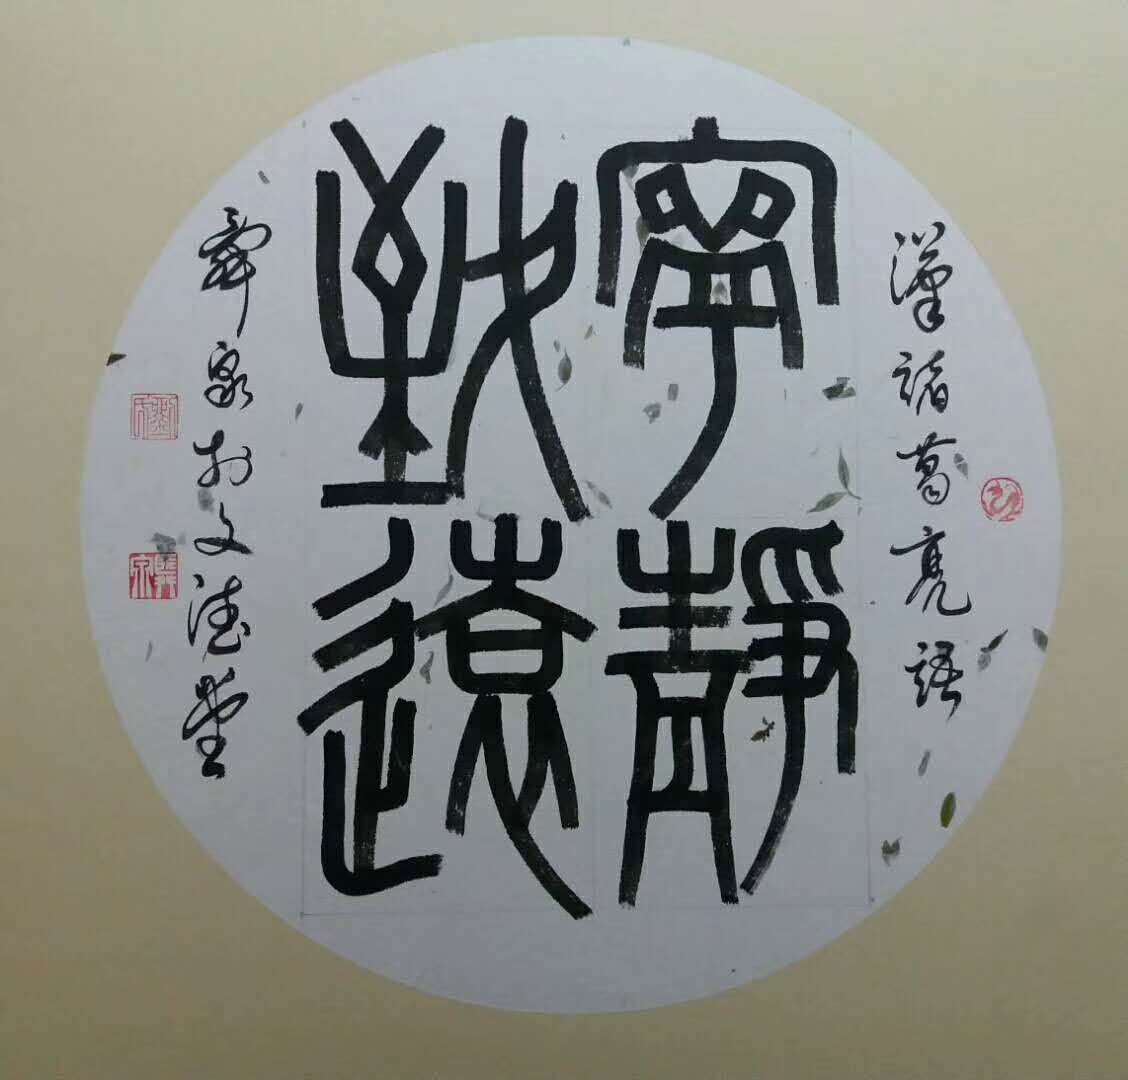 漢諸葛亮語
寧靜
致遠
舜泉於文德堂